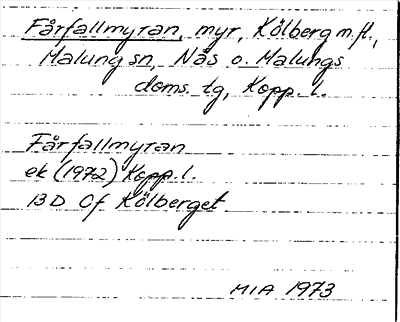 Fårfallmyran, myr, Kölberg m.fl.,
Malung sn, Nås o. Malungs
doms. tg, Kopp. l.
Fårfallmyran
ek (1972) Kopp. l.
13 D Cf Kölberget
MIA 1973